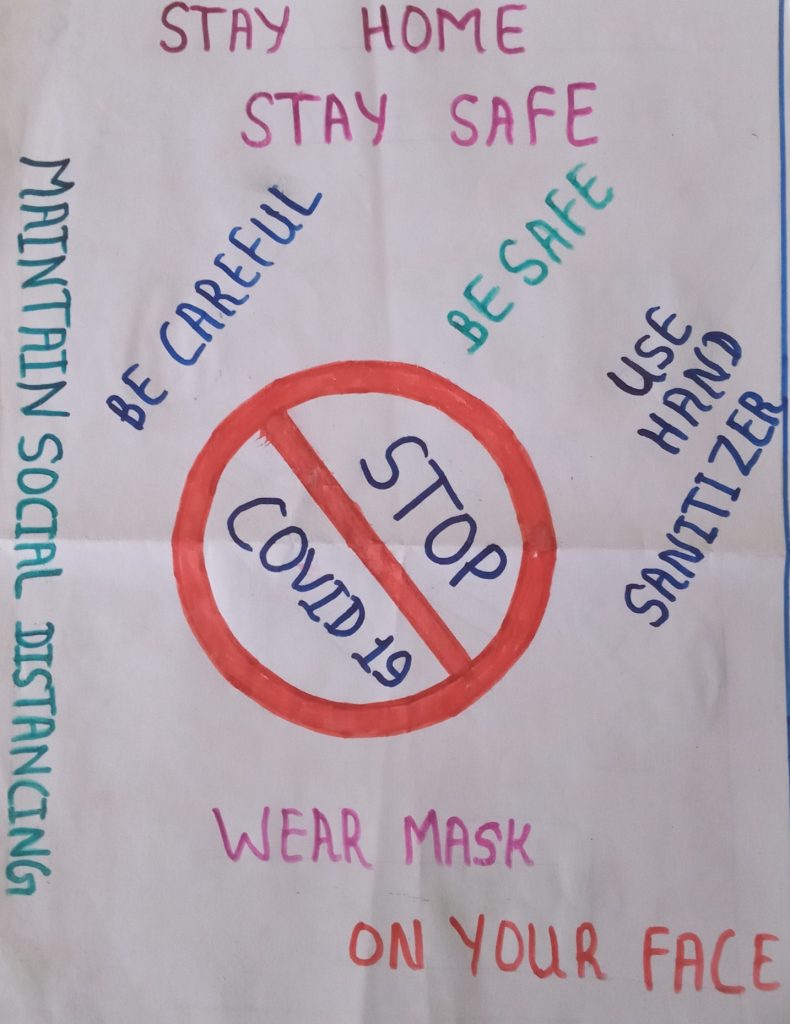 STAY HOME
STAY SAFE
MAINTAIN SOCIAL DISTANCING
BE CAREFUL
BE SAFE
USE
HAND
SANITIZER
STOP
COVID 19
WEAR MASK
ON YOUR FACE